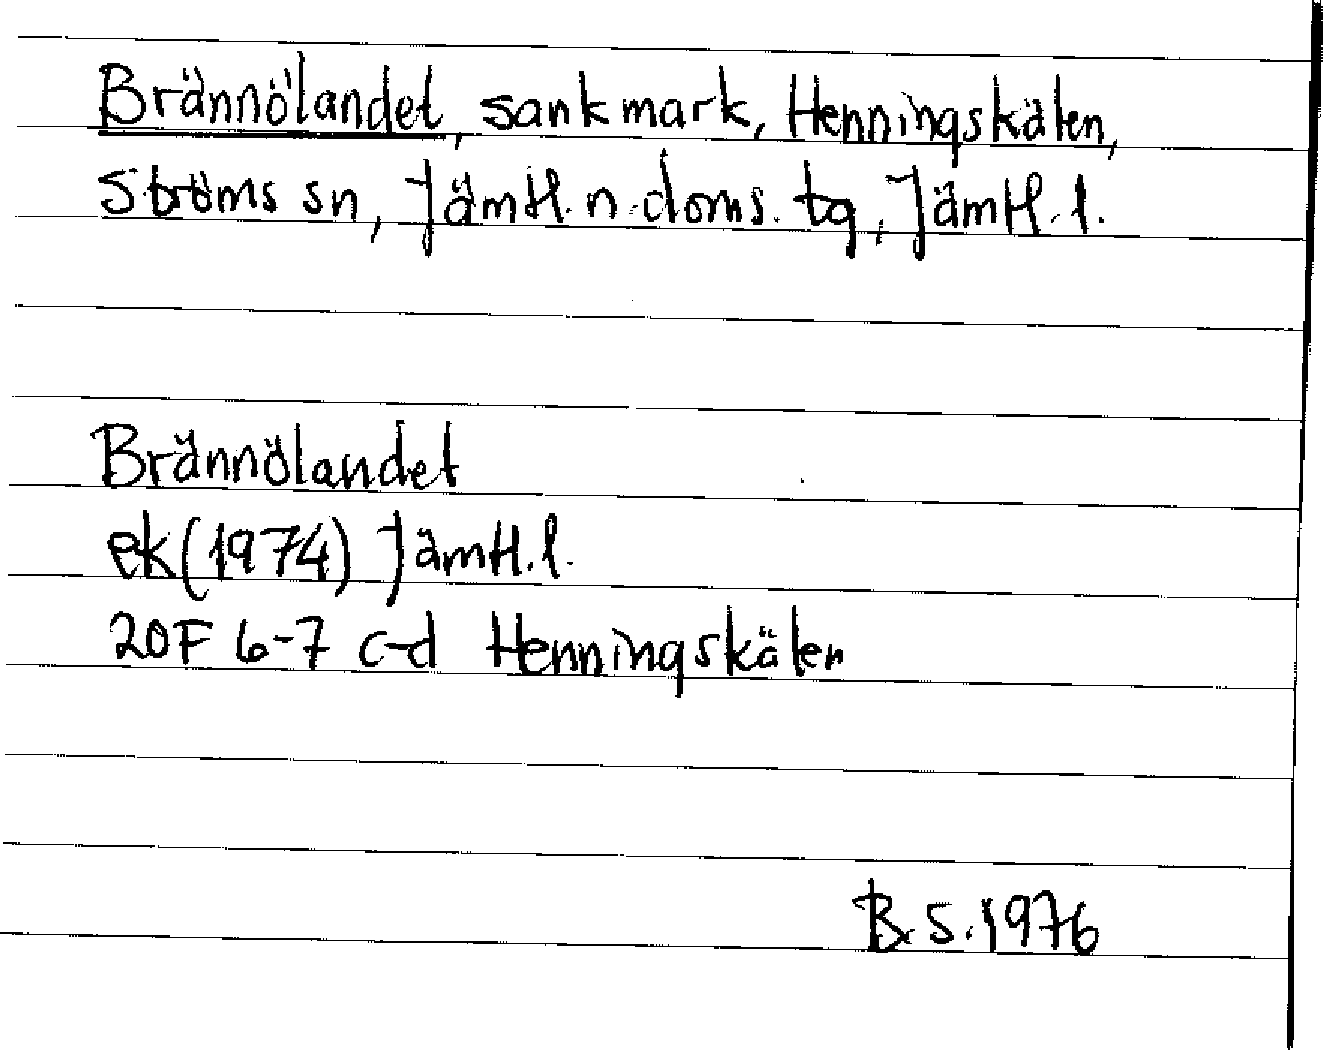 Brännölandet, sankmark, Henningskälen,
Ströms sn, Jämtl. n. doms. tg, Jämtl. l.
Brännölandet
ek (1974) Jämtl. l.
20F 6-7 c-d Henningskälen
B.S. 1976